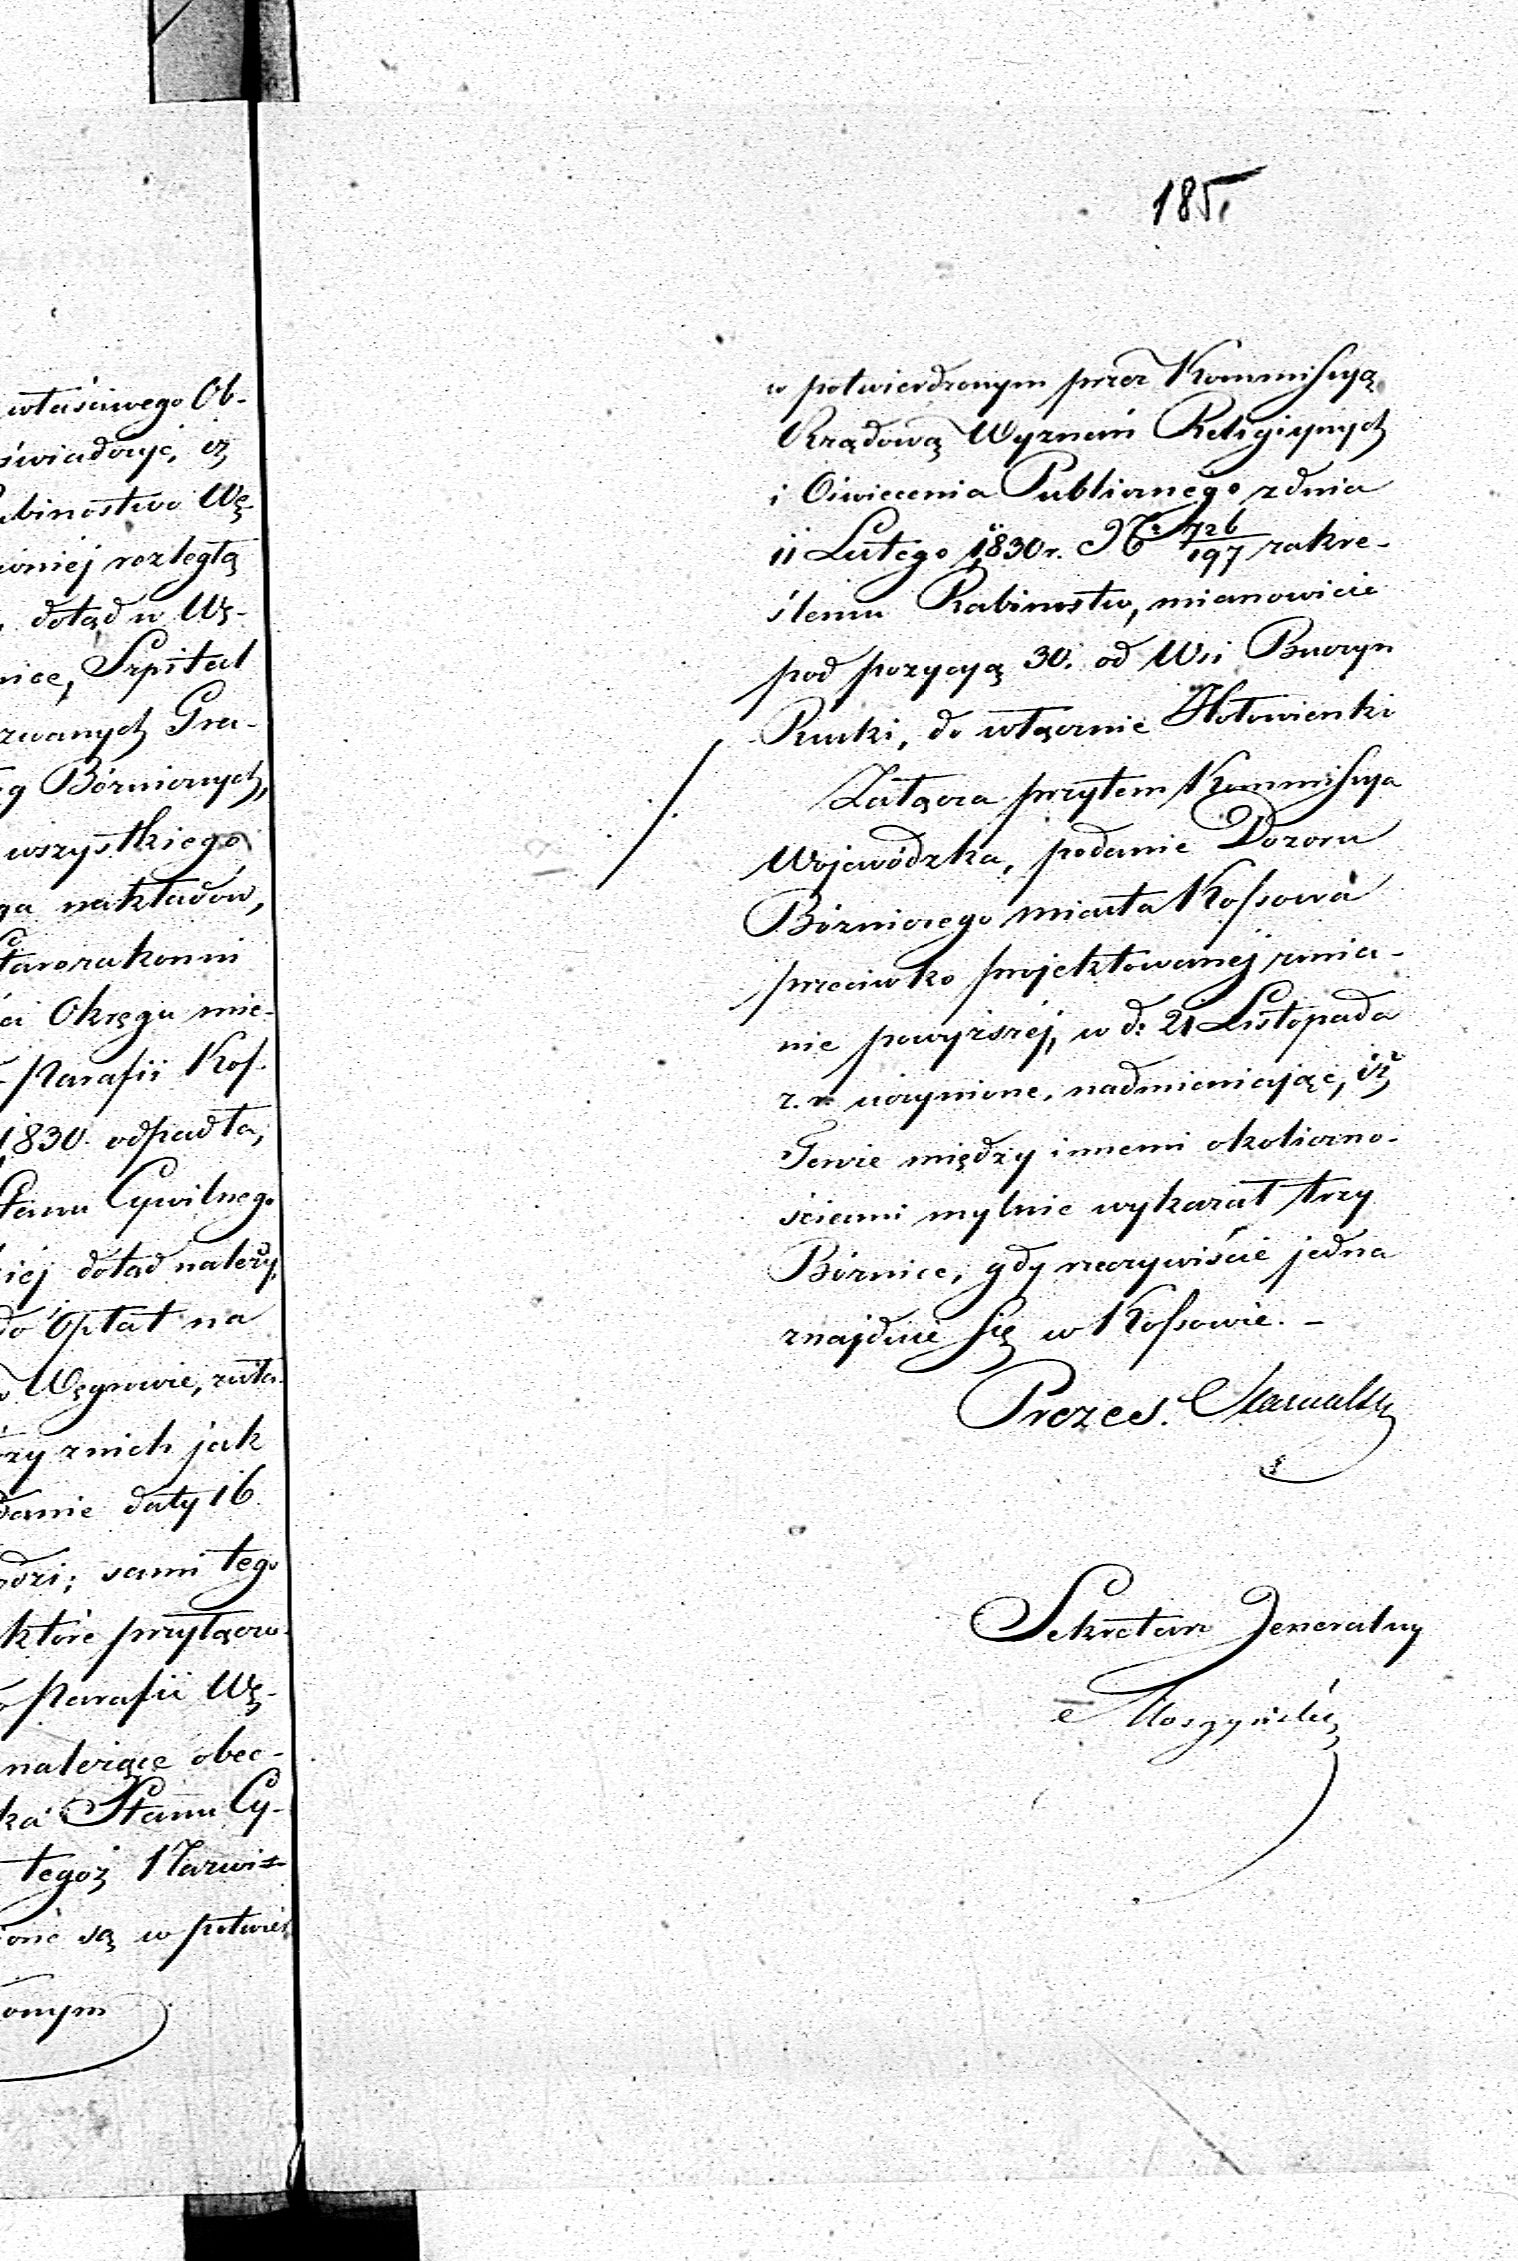 właściwego Ob-
świadczyć, iż
binostwo Wę-
wniej rozległą
dotąd w Wę-
nice, Szpital
zwanych Gra-
g Bóżniczych,
wszystkiego
ga nakładów,
Starozakonni
ci Okręgu mie-
Parafii Kos-
1830. odpadła,
Stanu Cywilnego
iej dotąd należy,
do Opłat na
Węgrowie, zata-
rzy z nich jak
danie daty 16
odzi; sami tego
które przyłączo-
Parafii Wę-
należące obec-
ka Stanu Cy-
tegoż Nazwis-
one są w potwier
onym
185.
w potwierdzonym przez Kommissyą
Rządową Wyznań Religiynych
i Oświecenia Publicznego z dnia
11 Lutego 1830 r. No 726/197 zakre-
śleniu Rabinostw, mianowicie
pod pozycyą 30. od Wsi Buczyn
Rucki, do włącznie Hołowienki
Załącza przytem Kommissya
Wojewódzka, podanie Dozoru
Bóżniczego miasta Kossowa
przeciwko projektowanej zmia-
nie powyższej, w d: 21 Listopada
z. r. uczynione, nadmieniając, iż
Tenże między innemi okoliczno-
ściami mylnie wykazał trzy
Bóżnice, gdy rzeczywiście jedna
znajduie się w Kossowie. –
Prezes.
Sekretarz Jeneralny